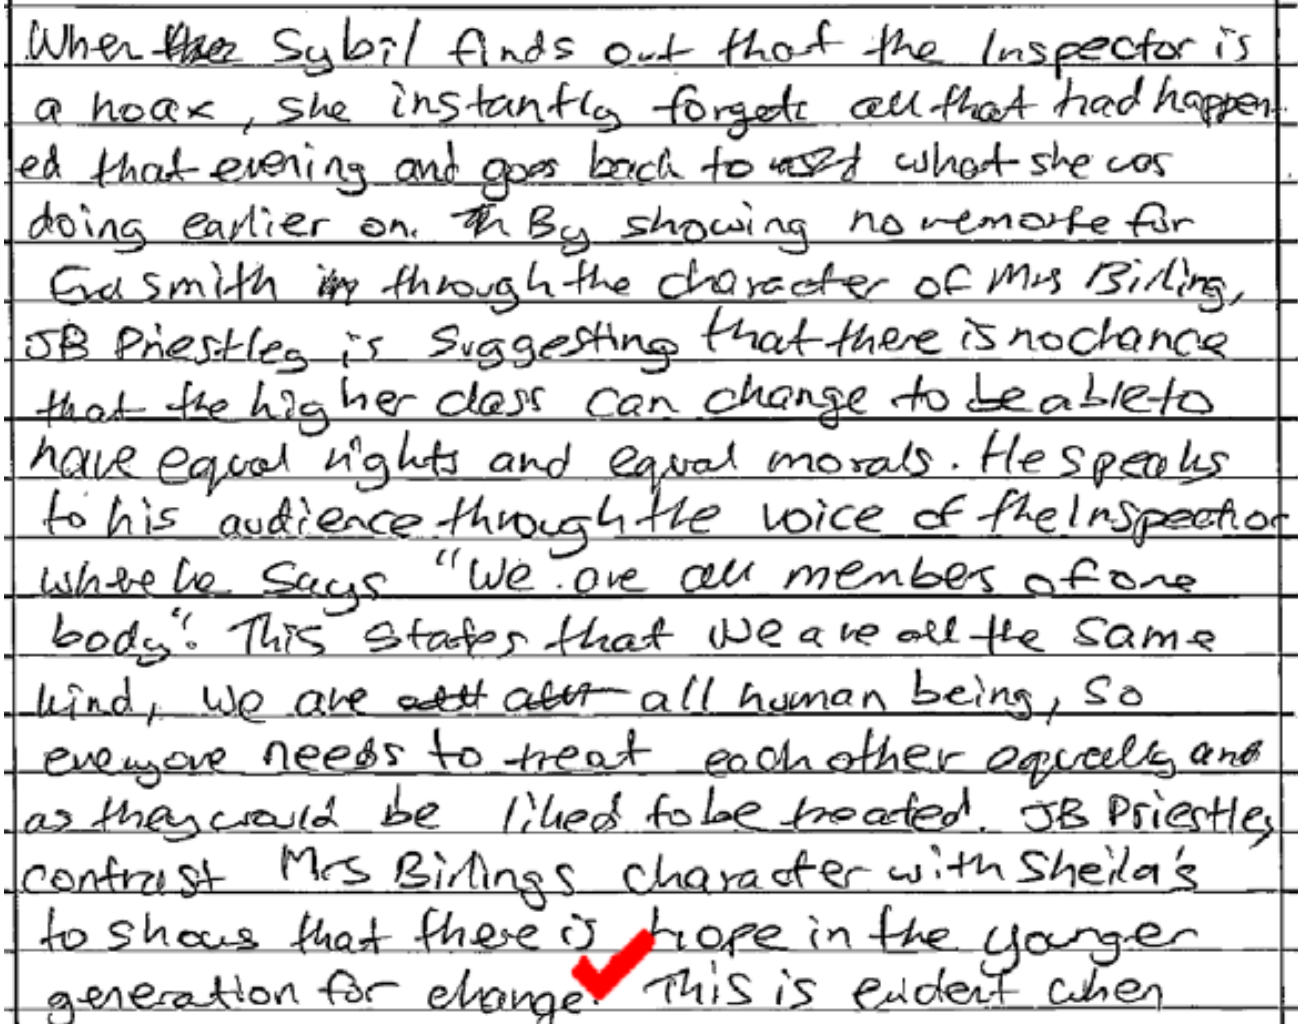 When Sybil finds out that the Inspector is
a hoax, she instantly forgets all that had happen
ed that evening and goes back to what she was
doing earlier on. By showing no remorse for
Eva Smith through the character of Mrs Birling,
JB Priestley is suggesting that there is no chance
that the higher class can change to be able to
have equal rights and equal morals. He speaks
to his audience through the voice of the Inspector
where he says "We are all members of one
body". This states that we are all the same
kind, we are all human being, so
everyone needs to treat each other equally and
as they would be liked to be treated. JB Priestley
contrast Mrs Birlings character with Sheila's
to shows that there is hope in the younger
generation for change. This is evident when